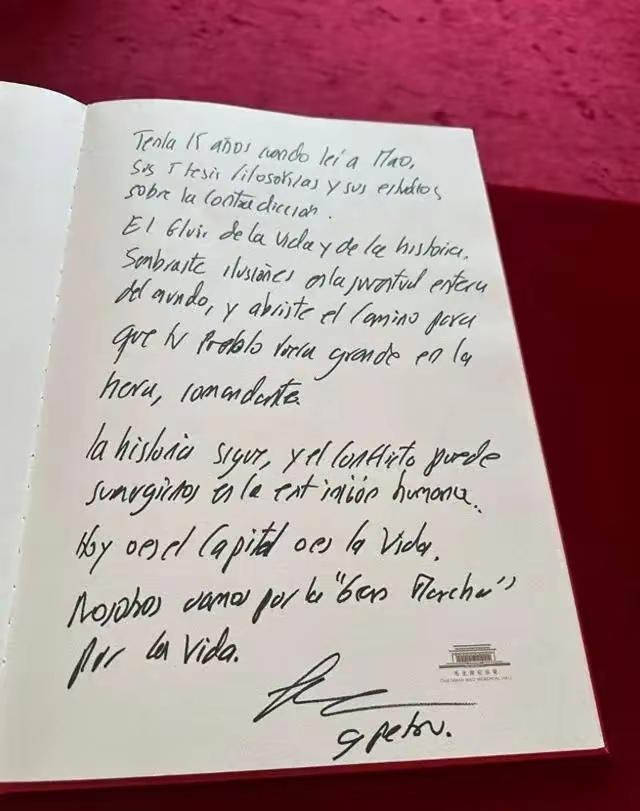 Tenía 15 años cuando leí a Mao,
Sus Thesis filosoficas y sus estudios
sobre la Contradiccion.
El fluir de la vida y de la historia.
Sembraste ilusiones en la juventud entera
del mundo, y abriste el camino para
que tu Pueblo fuera grande en la
hora, comandante.
la historia sigue, y el conflicto puede
sumergirnos en la extinción humana.
Hoy o es el Capital o es la Vida.
Nosotros vamos por la "Gran Marcha"
por la Vida.
毛主席纪念堂
CHAIRMAN MAO MEMORIAL HALL
G Petro.